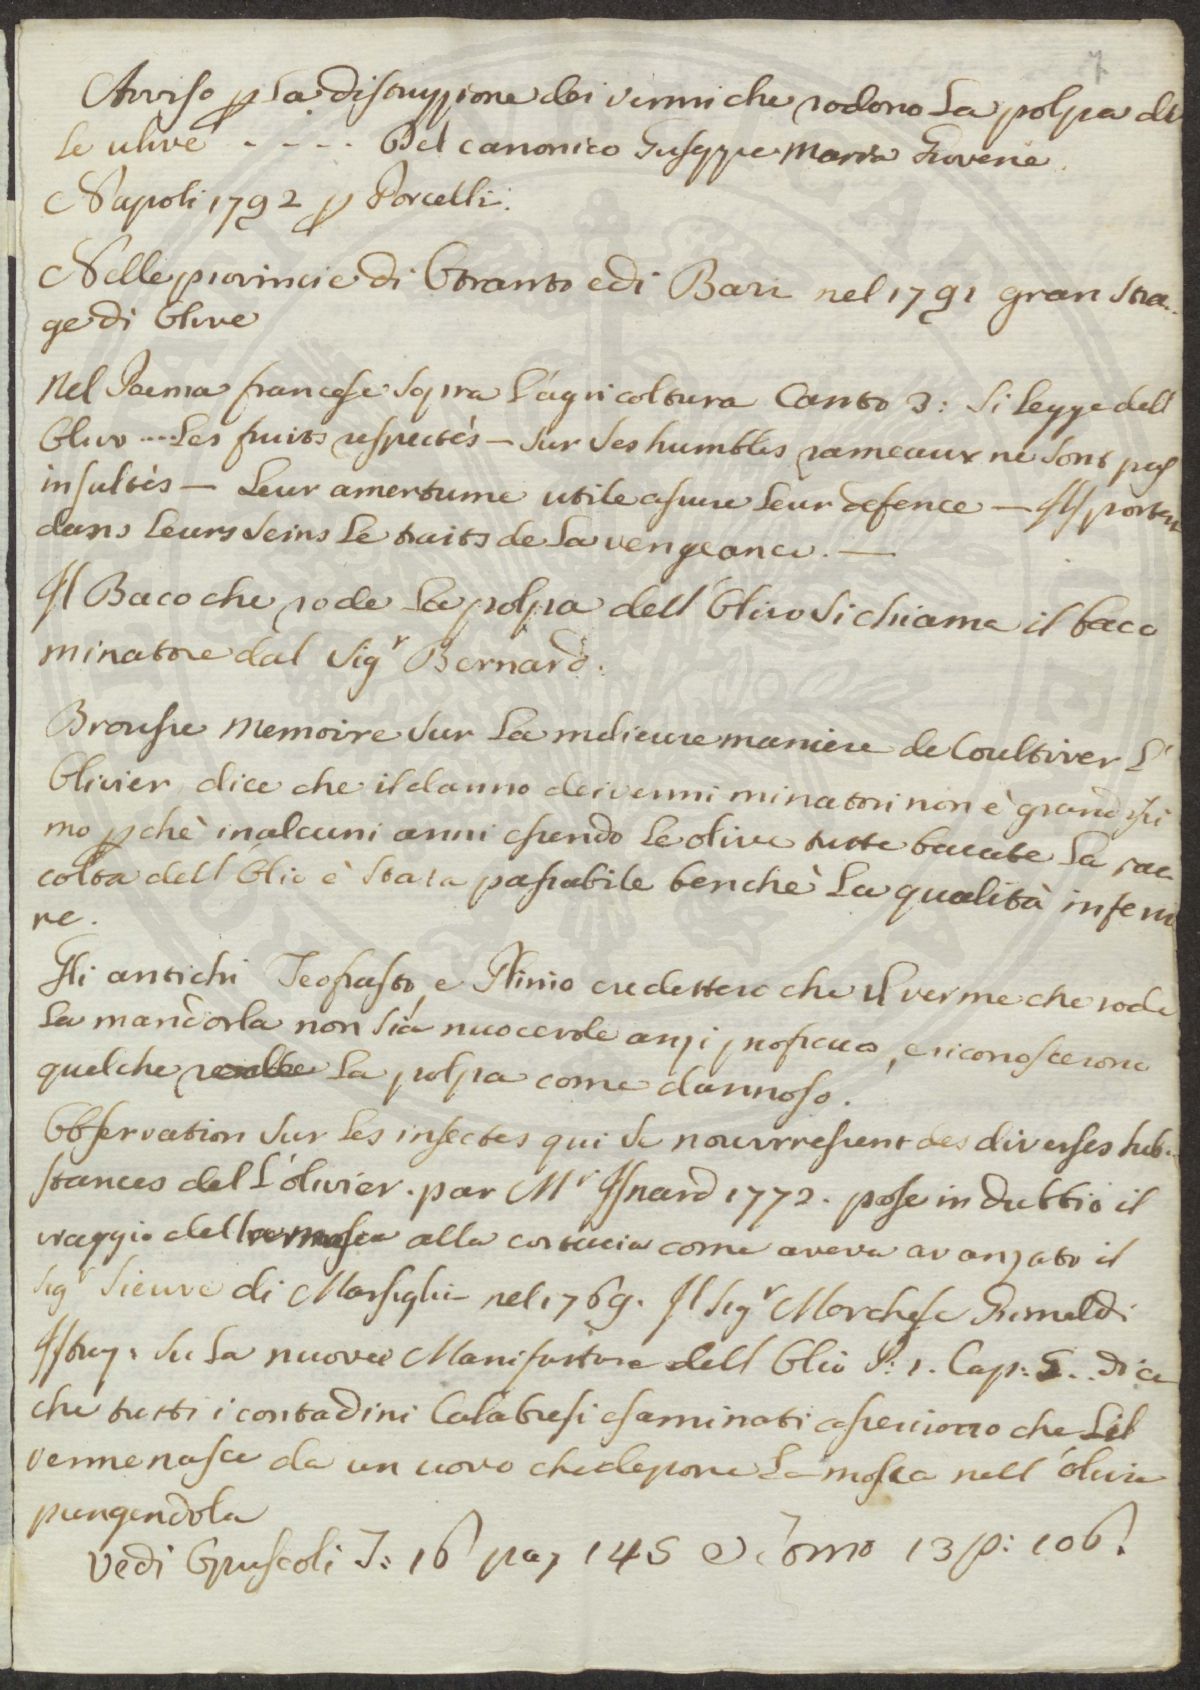 7
Avviso p la distruzzione dei vermi che rodono la polpa del
le ulive - - - - Del canonico Giuseppe Maria Giovene.
Napoli 1792 p Porcelli.
Nelle provincie di Otranto e di Bari nel 1791 gran stra-
ge di Olive
Nel Poema francese sopra l'agricoltura Canto 3: si legge dell'
Olivo --- Les fruits respectés — sur ses humbles rameaux ne sont pas
insultés — Leur amertume utile assure leur defence — Ils portent
dans leurs seins le traits de la vengeance. —
Il Baco che rode la polpa dell'Olivo si chiama il baco
minatore dal Sigr Bernard.
Brousse Memoire sur la melieure maniere de Coultiver l'
Olivier, dice che il danno dei vermi minatori non è grandissi
mo pchè in alcuni anni essendo le olive tutte bacate la rac
colta dell'Olio è stata passabile benchè la qualità inferio
re.
Gli antichi Teofrasto e Plinio credettero che il verme che rode
la mandorla non sia nuocevole anzi proficuo, e riconoscerono
quelche la polpa come dannoso.
Observation sur les insectes qui se nourressent des diverses sub-
stances del l'olivier. par Mr Isnard 1772. pose in dubbio il
viaggio della mosca alla corteccia come aveva avanzato il
Sigr Sieuve di Marsiglia nel 1769. Il Sigr Marchese Grimaldi
Istruz: su la nuova Manifattura dell'Olio P: 1. Cap: 5.. dice
che tutti i contadini Calabresi esaminati asseriorno che il
verme nasce da un uovo che depone la mosca nell'oliva
pungendola
Vedi Opuscoli T: 16 pag 145 e Tomo 13 p: 106.